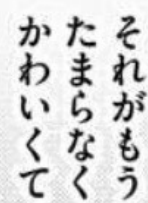 それがもう
たまらなく
かわいくて